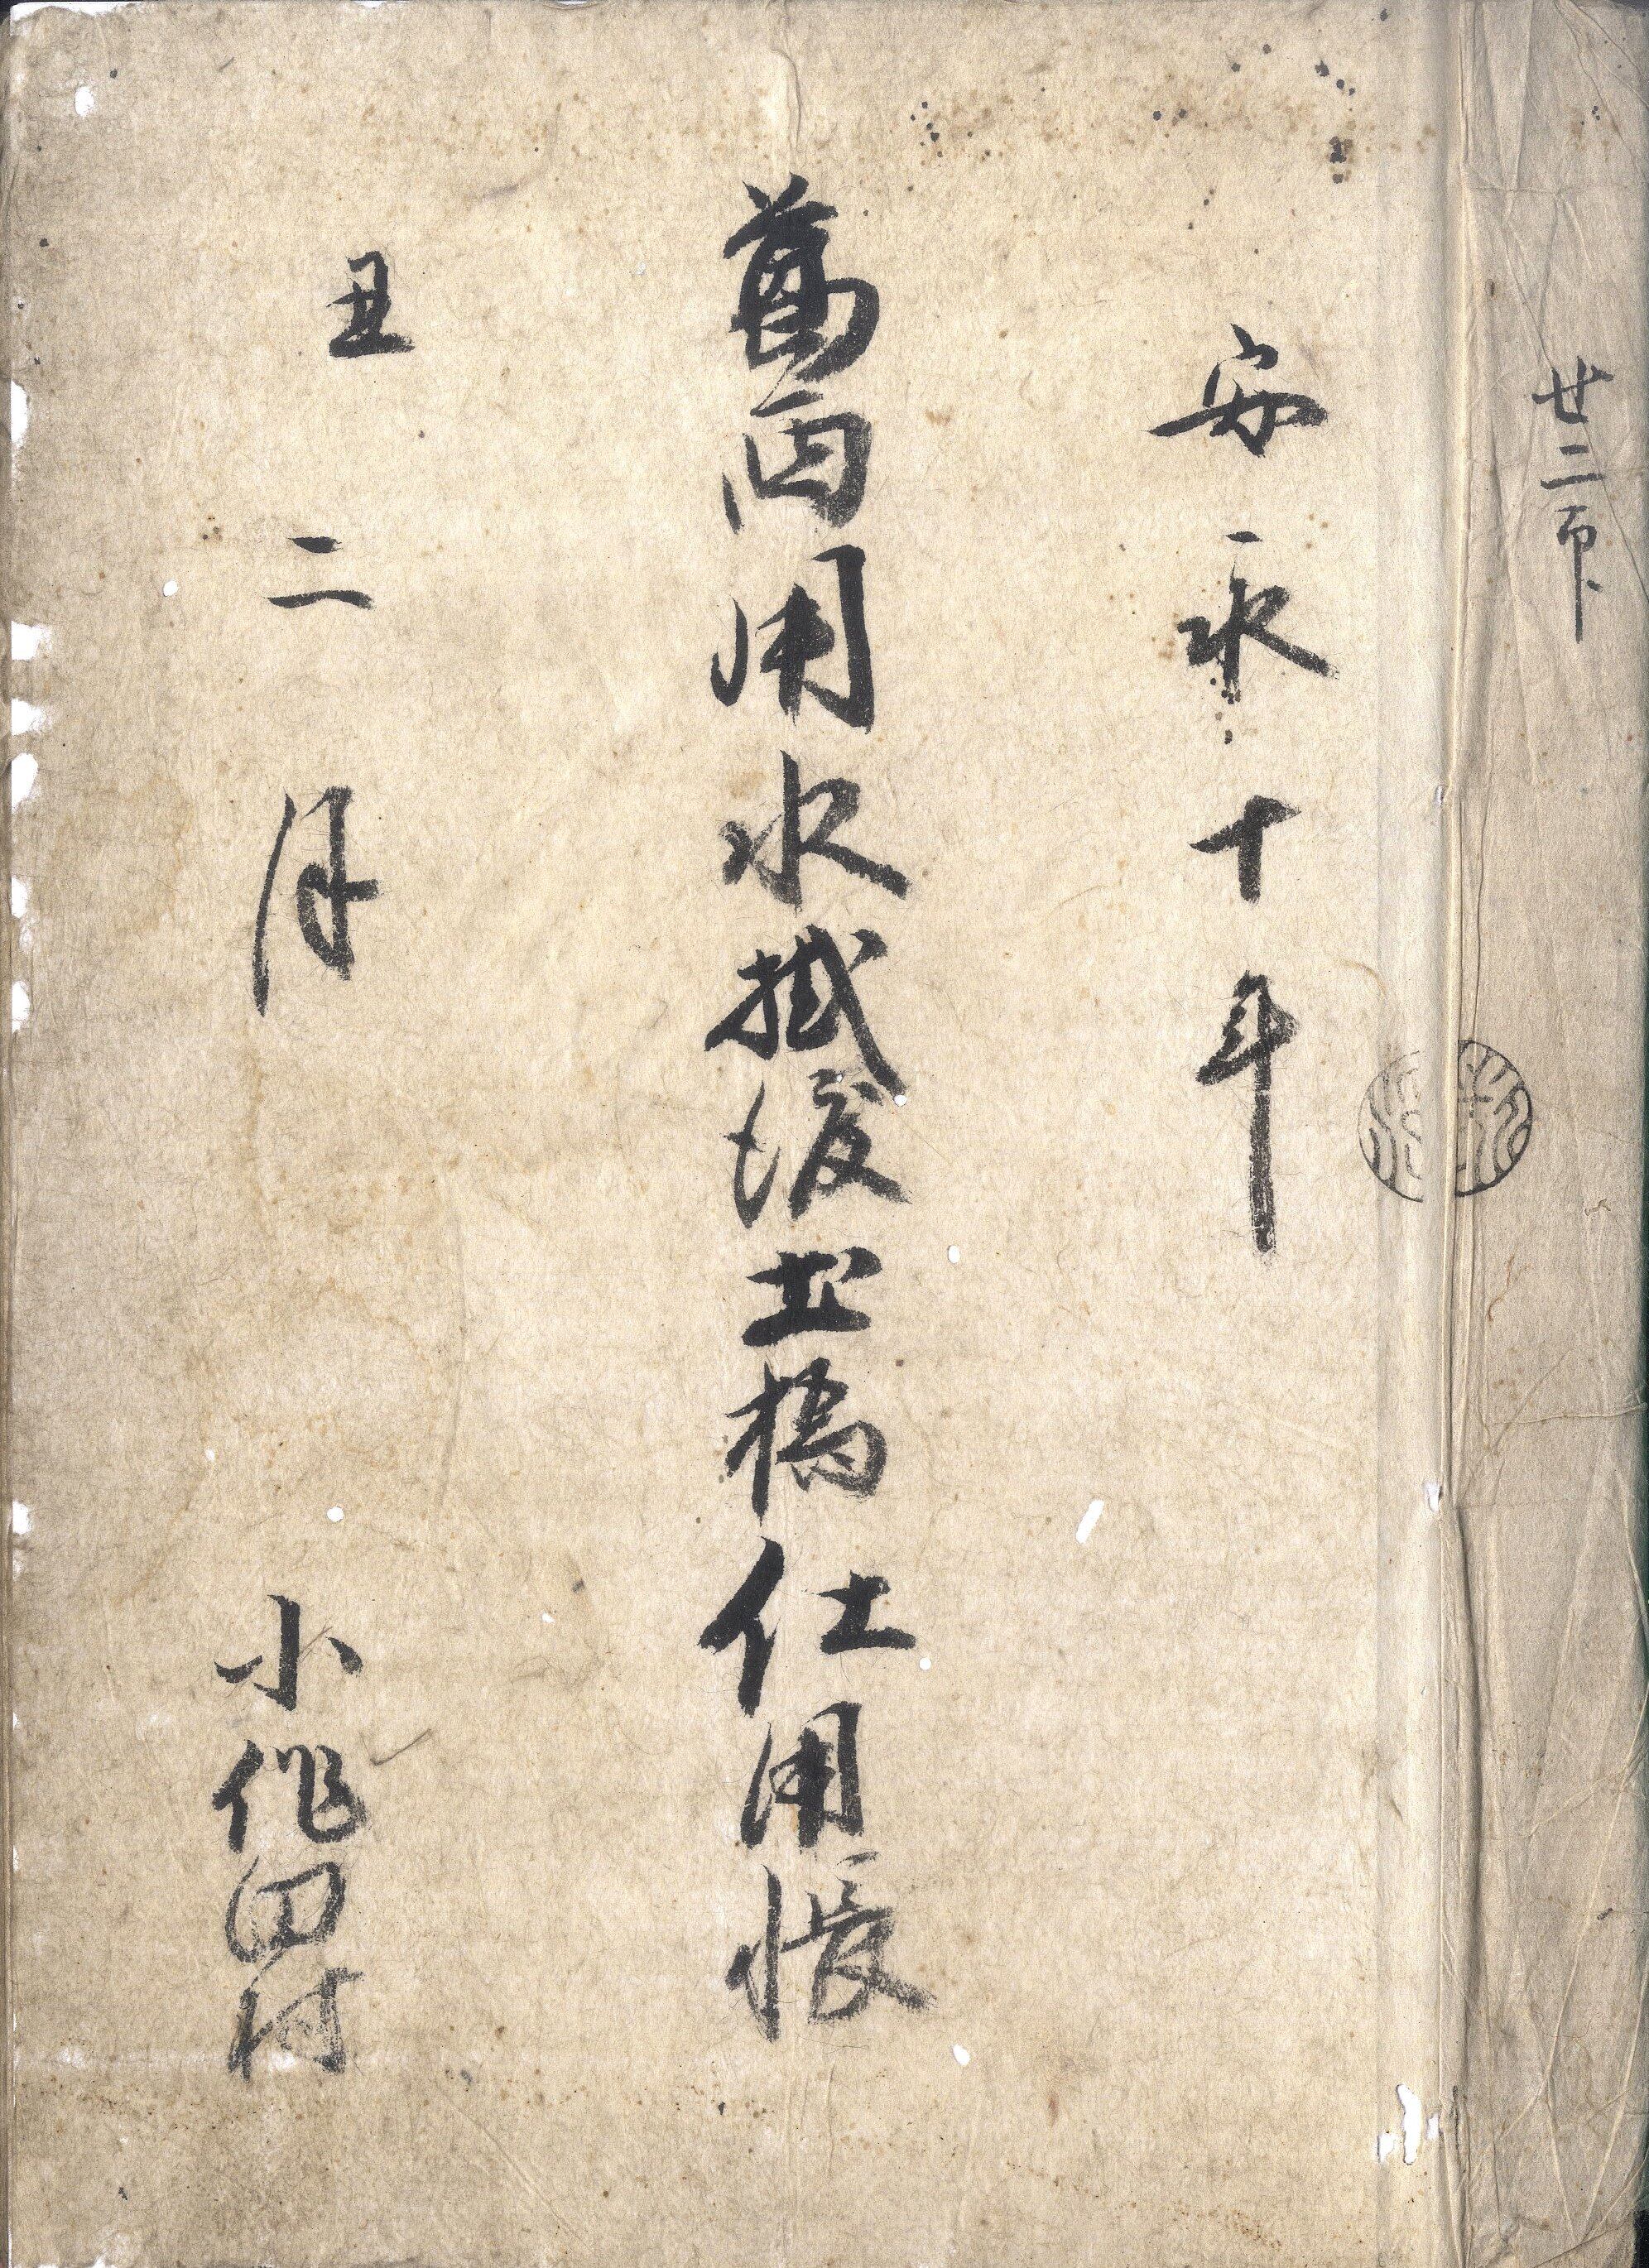 廿二
安永十年
葛西用水掛渡土橋仕用帳
丑二月
小作田村